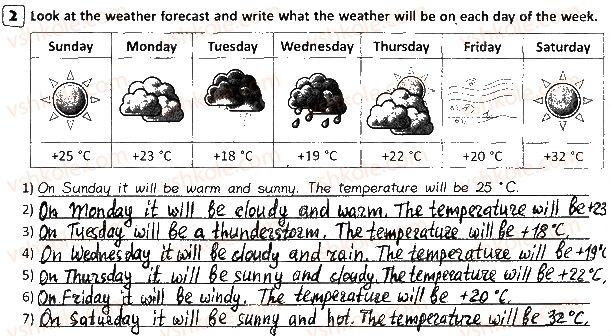 2 Look at the weather forecast and write what the weather will be on each day of the week.
Sunday Monday Tuesday Wednesday Thursday Friday Saturday
+25 °C +23 °C +18 °C +19 °C +22 °C +20 °C +32 °C
1) On Sunday it will be warm and sunny. The temperature will be 25 °C.
2) On Monday it will be cloudy and warm. The temperature will be +23
3) On Tuesday will be a thunderstorm. The temperature will be +18°C.
4) On Wednesday it will be cloudy and rain. The temperature will be +19°C
5) On Thursday it will be sunny and cloudy. The temperature will be +22°C.
6) On Friday it will be windy. The temperature will be +20 °C.
7) On Saturday it will be sunny and hot. The temperature will be 32°C.